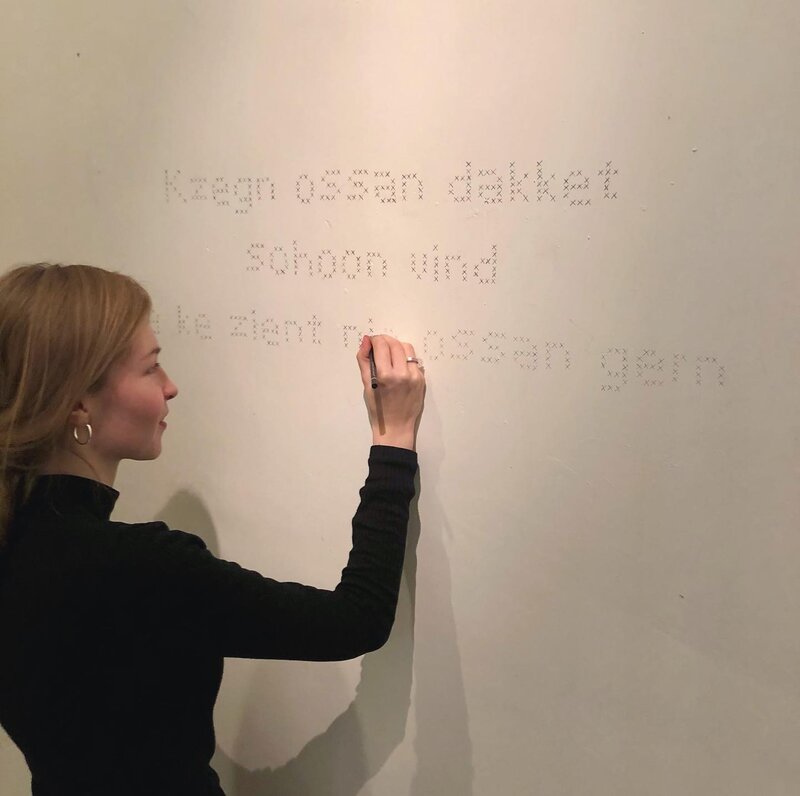 Kzegn ossan dakket
sohoon vind
ke zient ossan gern